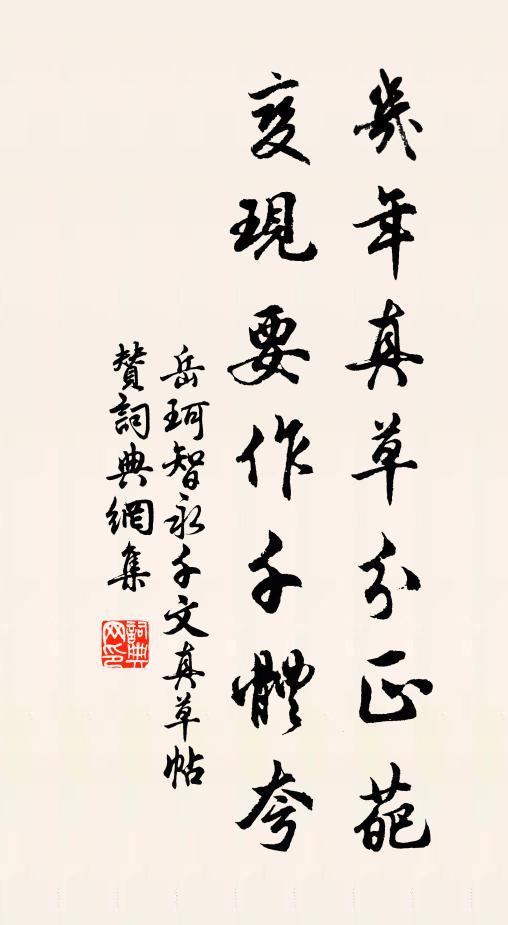 幾年真草分正葩
變現要作千體夸
岳珂智永千文真草帖
贊詞典網集
詞典网印